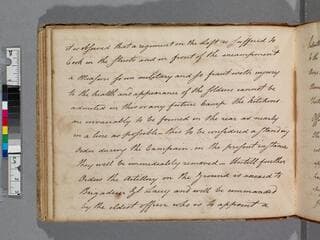 it is observed that a regiment on the Left is suffered to
Cook in the streets and in front of the encampment
a Measure so un military and so fraut with injury
to the health and appearance of the soldiers cannot be
admited in this or any future Camp the kitchens
are invariably to be formed in the rear as nearly
in a line as possible this to be considered a standing
Order during the Campain. in the present instance
they will be immediately removed Untill further
Orders the Artillery on the Ground is annexed to
Brigadeer Gl and will be commanded
by the eldest officer who is to appoint a